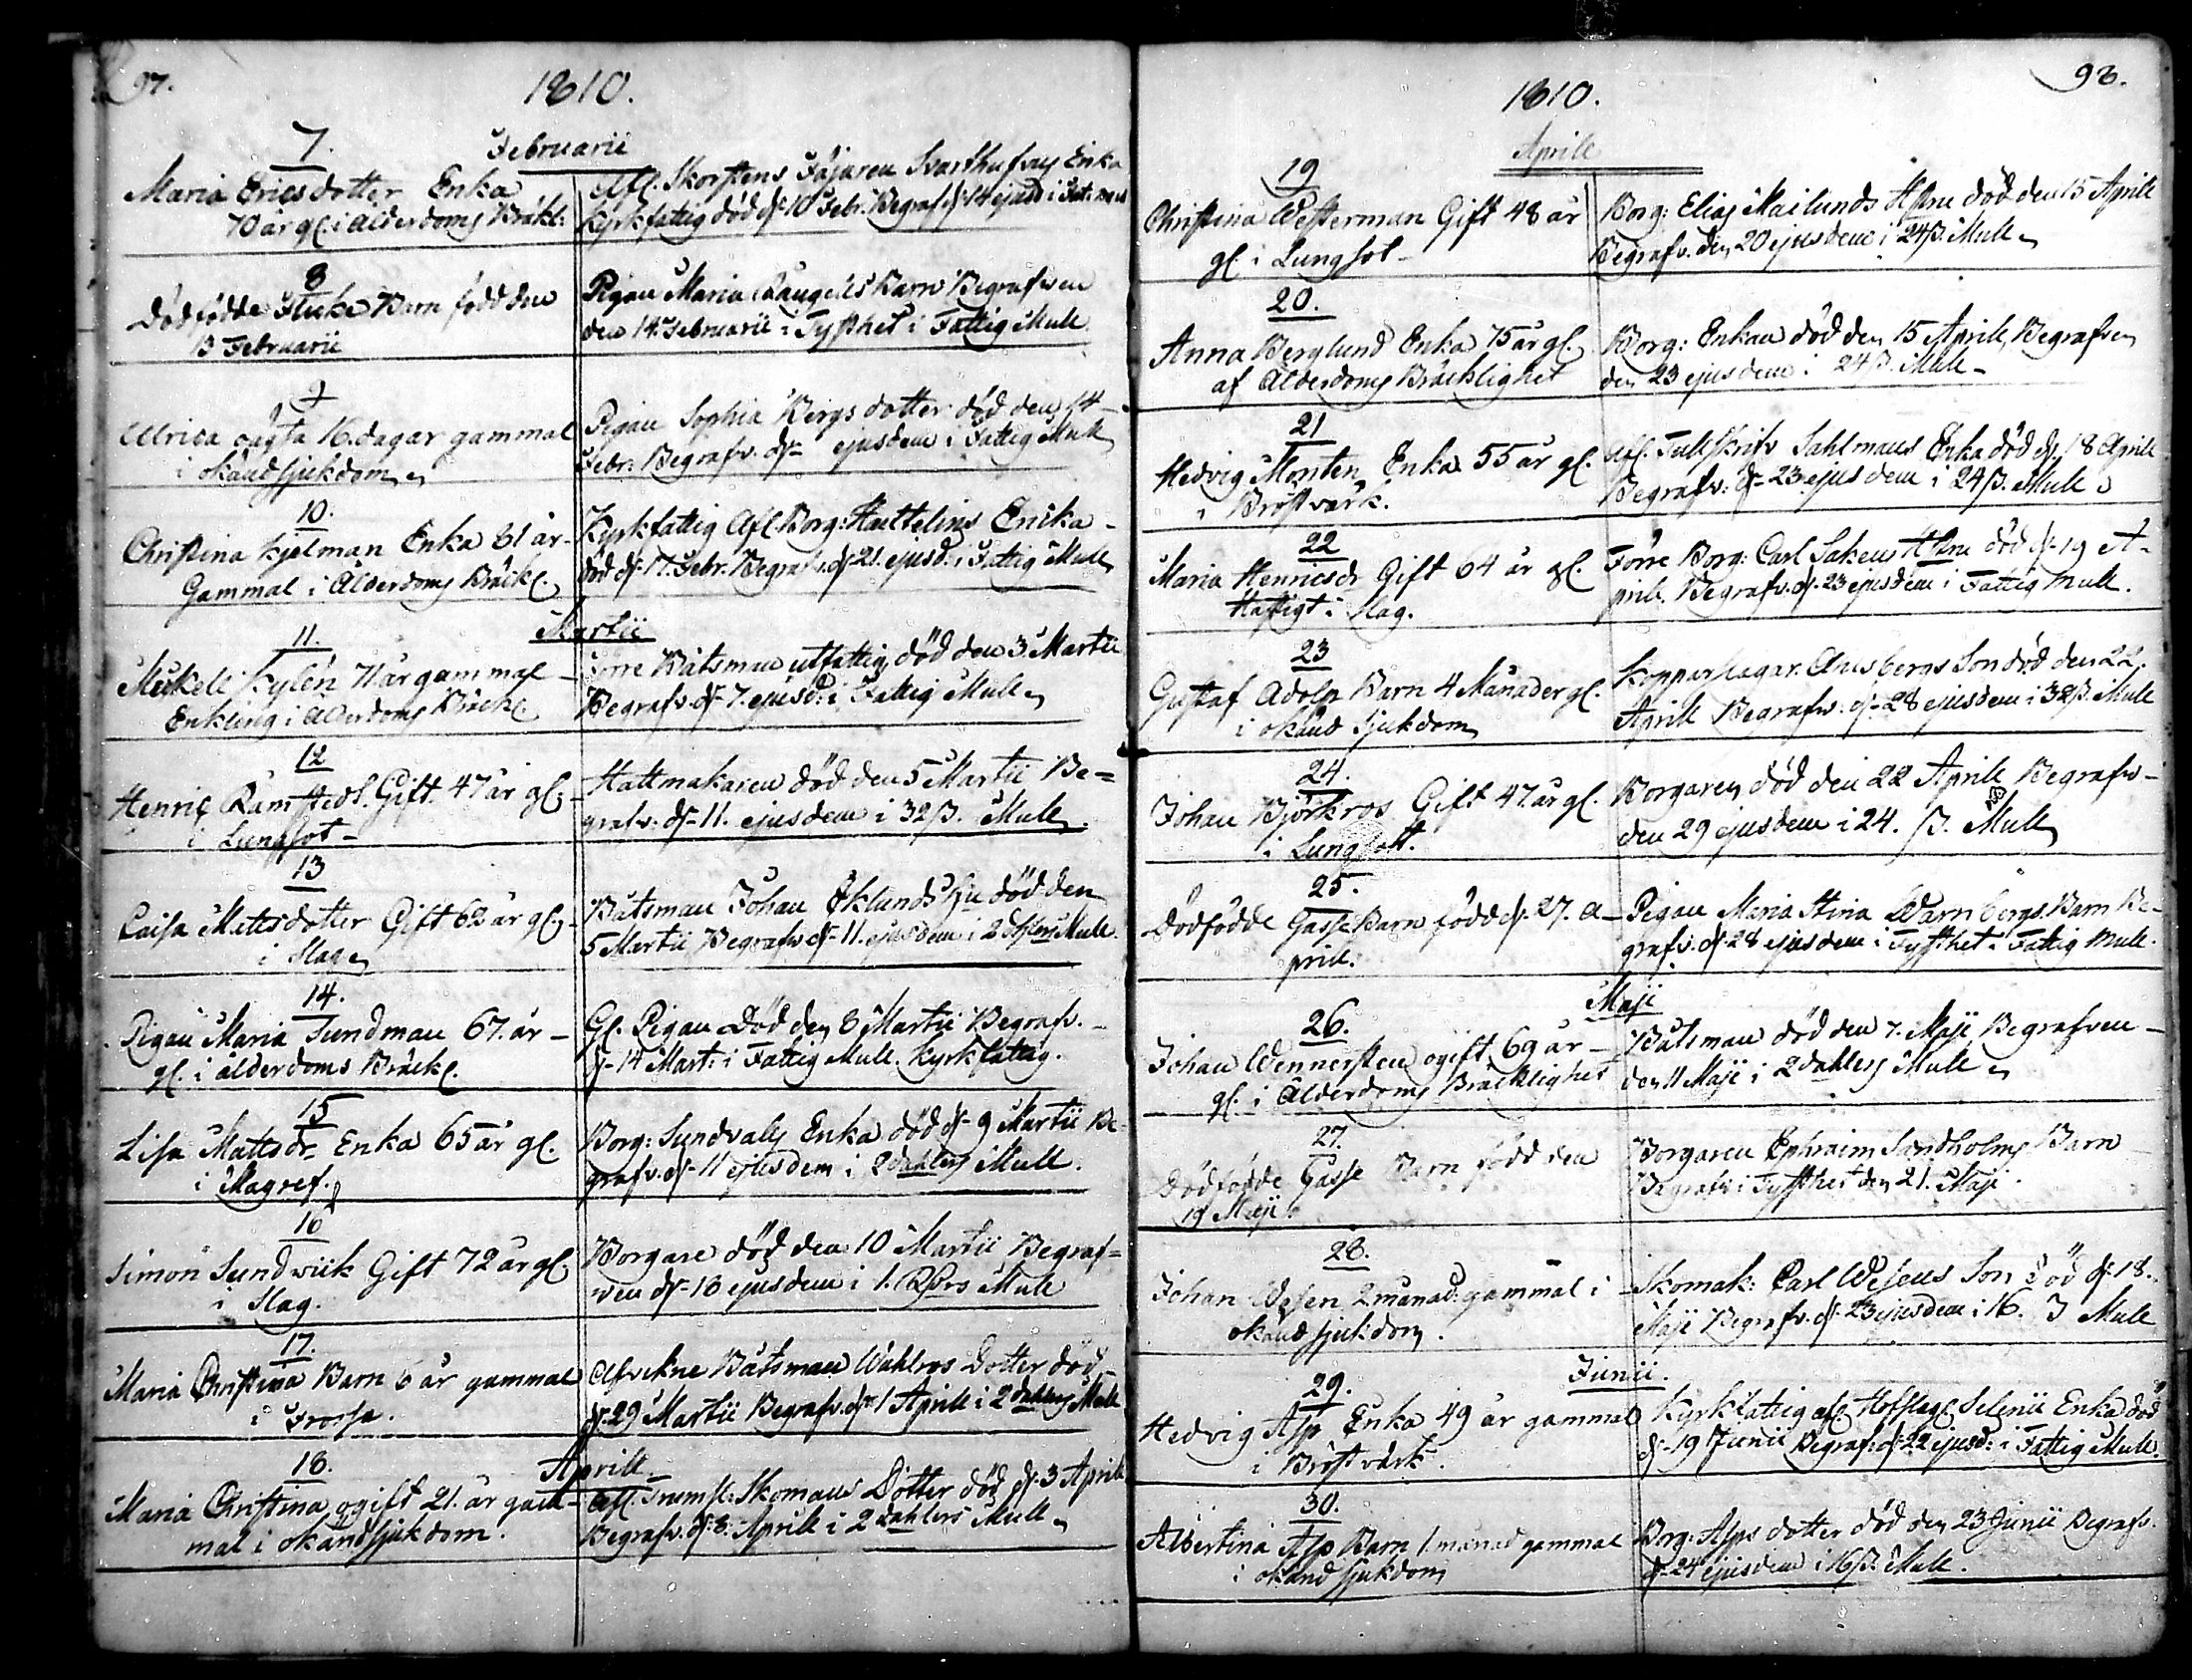 97.
1810.
Februarii
7.
Maria Ericsdotter Enka
70 år gl. i ålderdoms Bräkl:
Afl. Skorstens Fäjaren Svarthufvus Enka
Kyrkfattig död d. 10 Febr. Begraf d. 14 ejusd i Fat:
8
Dödfödde Flicke Barn född den
13 Februarii
Pigan Maria Barn Begrafven
den 14 Februarii i Tysthet i Fattig Mull
9
Ulrica oägta 16 dagar gammal
i okänd sjukdom
Pigan Sophia Bergsdotter död den 14
Febr: Begrafv. d. ejusdem i Fattig Mull
10.
Christina Kjelman Enka 81 år
Gammal i Ålderdoms Bräckl.
Kyrkfattig Afl. Borg: Huttelins Encka
död d. 17 Febr. Begrafv. d. 21 ejusd. i Fattig Mull
Martii
11.
Mickel Kylén 71 år gammal
Enkling i Ålderdoms Bräckl
Förre Båtsman utfattig död den 3 Martii
Begrafv. d. 7. ejusd: i Fattig Mull
12
Henric Ramstedt Gift 47 år gl.
i Lungsot
Hattmakaren död den 5 Martii Be=
grafv. d. 11. ejusdem i 32 ß. Mull.
13
Caisa Mattsdotter Gift 62 år gl.
i Slag
Båtsman Johan Öklunds Hu död den
5 Martii Begrafv d. 11. ejusdem i 2 dahlers Mull.
14.
Pigan Maria Sundman 67. år
gl. i ålderdoms Bräckl.
Gl. Pigan Död den 8 Martii Begrafv.
d. 14 Mart: i Fattig Mull. Kyrkfattig.
15
Lisa Mattsdr Enka 65 år gl.
i Magref.
Borg: Sundvalls Enka död d. 9 Martii Be-
grafv. d. 11 ejusdem i 2 dahlers Mull.
16
Simon Sundwik Gift 72 år gl.
i Slag.
Borgare död den 10 Martii Begraf=
ven d. 16 ejusdem i 1. Rdrs Mull
17.
Maria Christina Barn 6 år gammal
i Frossa.
Afvekne Båtsman Wahlros Dotter död
d. 29 Martii Begrafv. d. 1 Aprill i 2 dahlers Mull
Aprill
18.
Maria Christina ogift 21. år gam-
mal i okänd sjukdom.
Afl. Trumsl: Skomans Dotter död d. 3 Aprill
Begrafv. d. 8. Aprill i 2 Dahlers Mull
98.
1810.
Aprill
19
Christina Westerman Gift 48 år
gl. i Lungsot
Borg: Elias Mailunds Hstru död den 15 Aprill
Begrafv. den 20 ejusdem i 24 ß. Mull
20.
Anna Berglund Enka 75 år gl.
af Ålderdoms Bräcklighet
Borg: Enkan död den 15 Aprill Begrafven
den 23 ejusdem i 24 ß. Mull
21
Hedvig Monten Enka 55 år gl.
i Bröstvärk.
Afl. Tullskrifv Sahlmans Enka död d. 18 Aprill
Begrafv: d. 23 ejusdem i 24 ß. Mull
22
Maria Henricsdr Gift 64 år gl
Hastigt i Slag.
Förre Borg: Carl Sakens Hstru död d. 19 A-
prill. Begrafv. d. 23 ejusdem i Fattig mull.
23
Gustaf Adolp Barn 4 Månader gl.
i okänd Sjukdom
Kopparslagar. Ahlsbergs Son död den 22.
Aprill Begrafv. d. 28 ejusdem i 32 ß. Mull
24.
Johan Björkros Gift 47 år gl.
i Lungsott.
Borgaren död den 22 Aprill Begrafv-
den 29 ejusdem i 24. ß. Mull
25.
Dödfödde Gasse Barn född d. 27. A-
prill.
Pigan Maria Stina Warnbergs Barn Be-
grafv. d. 28 ejusdem i Tysthet i Fattig Mull.
Maji
26.
Johan Wennersten ogift 69 år
gl. i Ålderdoms Bräcklighet
Båtsman död den 7. Maji Begrafven
den 11 Maji i 2 dahlers Mull
27.
Dödfödde Gasse Barn född den
19 Maji
Borgaren Ephraim Sandholms Barn
Begrafv: i Tysthet den 21. Maji.
28.
Johan Wesen 2 månad: gammal i
okänd sjukdom.
Skomak: Carl Wesens Son död d. 18.
Maji Begrafv. d. 23 ejusdem i 16. ß Mull
Junii.
29.
Hedvig Asp Enka 49 år gammal
i Bröstvärk.
Kyrkfattig afl. Hofslag. Selenii Enka död
d. 19 Junii Begraf: d. 22 ejusd: i Fattig Mull.
30.
Albertina Asp Barn 1. månad gammal
i okänd sjukdom
Borg: Asps dotter död den 23 Junii Begrafv.
d. 24 ejusdem i 16 ß. Mull.